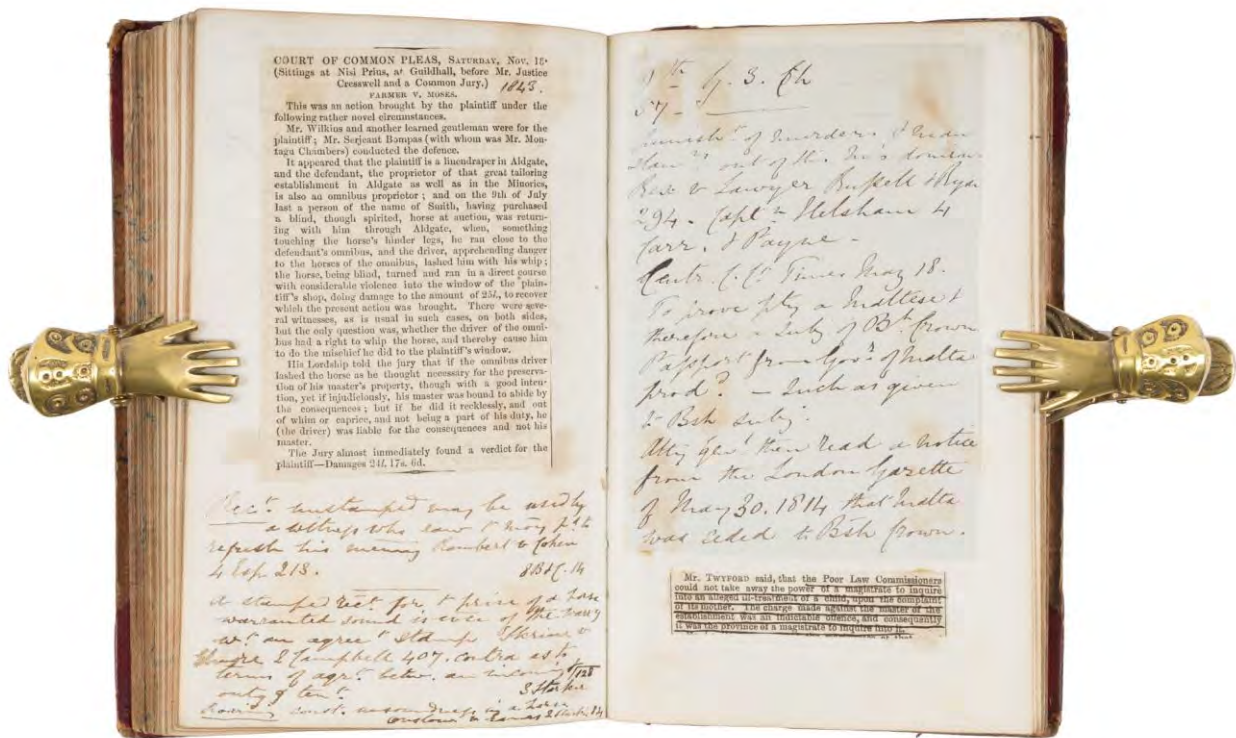 COURT OF COMMON PLEAS, SATURDAY, NOV. 18·
(Sittings at Nisi Prius, at Guildhall, before Mr. Justice
Cresswell and a Common Jury.) 1843.
FARMER V. MOSES.
This was an action brought by the plaintiff under the
following rather novel circumstances.
Mr. Wilkins and another learned gentleman were for the
plaintiff; Mr. Serjeant Bompas (with whom was Mr. Mon-
tagu Chambers) conducted the defence.
It appeared that the plaintiff is a linendraper in Aldgate,
and the defendant, the proprietor of that great tailoring
establishment in Aldgate as well as in the Minories,
is also an omnibus proprietor; and on the 9th of July
last a person of the name of Smith, having purchased
a blind, though spirited, horse at auction, was return-
ing with him through Aldgate, when, something
touching the horse's hinder legs, he ran close to the
defendant's omnibus, and the driver, apprehending danger
to the horses of the omnibus, lashed him with his whip;
the horse, being blind, turned and ran in a direct course
with considerable violence into the window of the plain-
tiff's shop, doing damage to the amount of 25l., to recover
which the present action was brought. There were seve-
ral witnesses, as is usual in such cases, on both sides,
but the only question was, whether the driver of the omni-
bus had a right to whip the horse, and thereby cause him
to do the mischief he did to the plaintiff's window.
His Lordship told the jury that if the omnibus driver
lashed the horse as he thought necessary for the preserva-
tion of his master's property, though with a good inten-
tion, yet if injudiciously, his master was bound to abide by
the consequences; but if he did it recklessly, and out
of whim or caprice, and not being a part of his duty, he
(the driver) was liable for the consequences and not his
master.
The Jury almost immediately found a verdict for the
plaintiff—Damages 24l. 17s. 6d.
Rect. unstamped may be used by
a witness who saw t mony pd. to
refresh his memory Rambert v Cohen
4 Esp 213. 8 B&C. 14
A stamped rect. for t price of a horse
warranted sound is evce of the warry
wt. an agreet. stamp Skrine v
Elmore 2 Campbell 407. contra as to
terms of agrt. betw. an incoming &
outg tent. 3 Starkie
Roaring const. unsoundness in a horse
Onslow v Eames 2 Stark. 81
9th G. 3. Ch
57
of murders & man
out of the
Rex v Sawyer Russell & Ryan
294. Capt. Helsham 4
Carr. & Payne -
Centr. C. Ct. Times May 18.
To prove pty a Maltese &
therefore a subj of Bh. Crown
Passport from Govr. of Malta
prod. — Such as given
to Bsh subj.
Atty Genl. then read a notice
from the London Gazette
of May 30. 1814 that Malta
was ceded to Bsh Crown.
Mr. TWYFORD said, that the Poor Law Commissioners
could not take away the power of a magistrate to inquire
into an alleged ill-treatment of a child, upon the complaint
of its mother. The charge made against the master of the
establishment was an indictable offence, and consequently
it was the province of a magistrate to inquire into it.